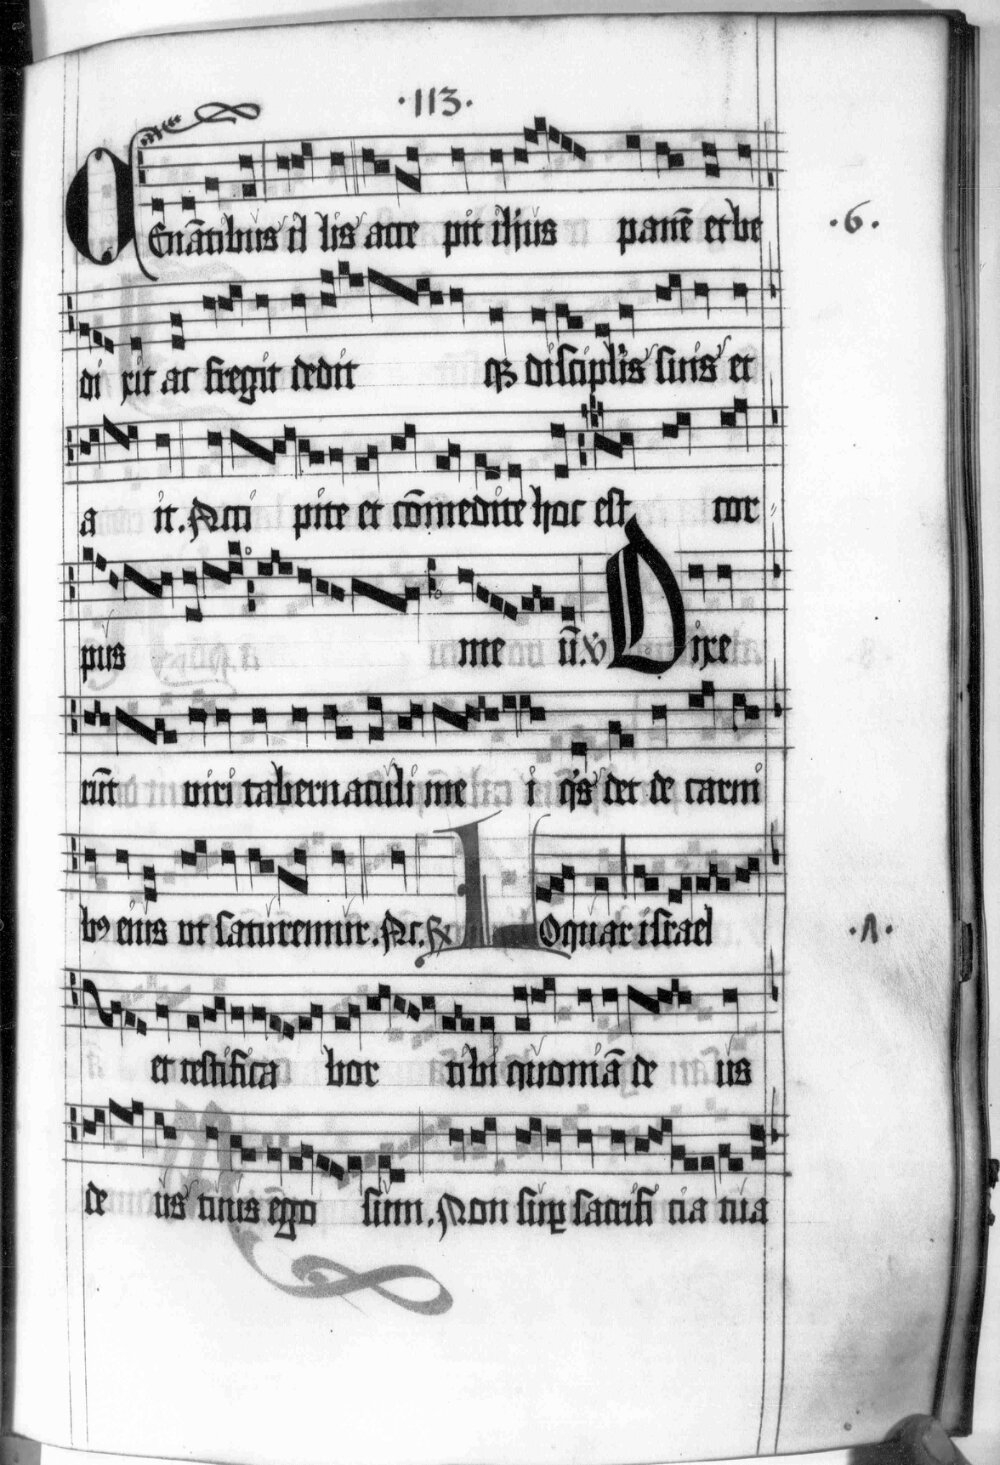 ·113·
CEnātibus il lis acce pit ihus panē et be
·6·
di xit ac fregit dedit qꝫ discipĺis suis et
a it. Acci pite et cōmedite hoc est cor
pus me ū. ℣ Dixe
rūt viri tabernaculi me i q̇s det de carni
bꝰ eius ut saturemur. Ac. ℟ LOquar israel
·Λ·
et testifica bor tibi quoniā de us
de us tuus ego sum. Non suꝑ sacrifi cia tua